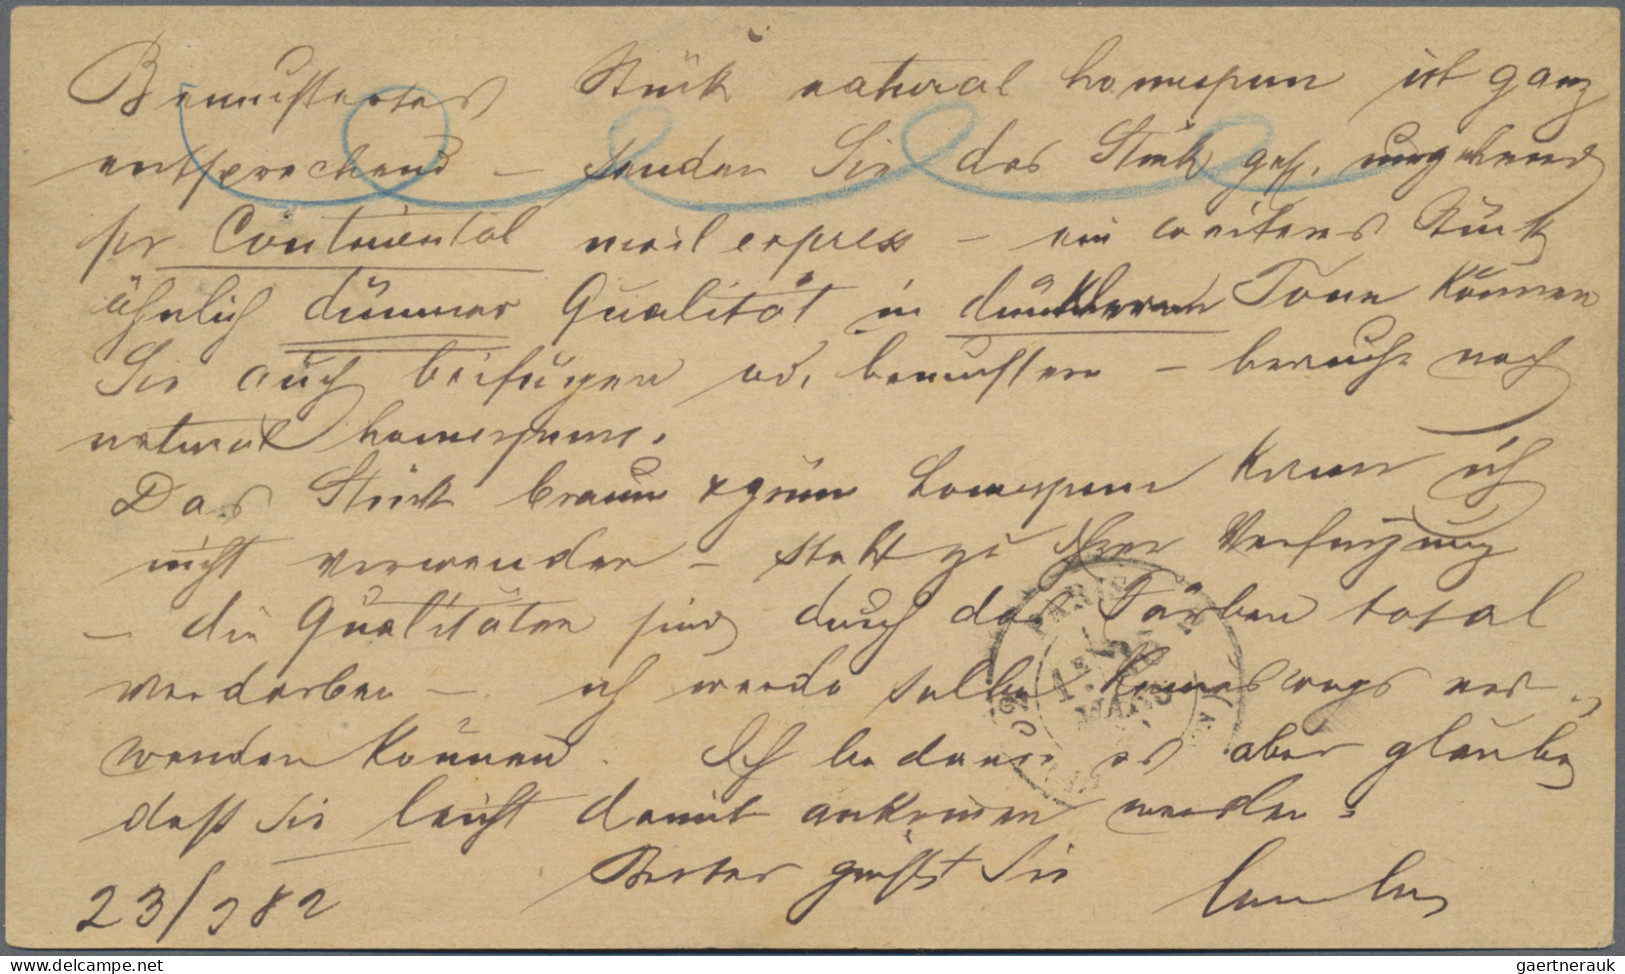 Bemustertes Stück natural homespun ist ganz
entsprechend – senden Sie das Stück gefl. umgehend
per Continental mail express – ein weiteres Stück
ähnlich dünner Qualität in dunklerem Tone können
Sie auch beifügen od. bemustern – brauche noch
natural homespuns.
Das Stück braun & grün homespun kann ich
nicht verwenden – steht zu Ihrer Verfügung
– die Qualitäten sind durch das Färben total
verdorben – ich werde selbe keineswegs ver-
wenden können. Ich bedaure es aber glaube
daß Sie leicht damit ankommen werden.
Bestes grüßt Sie
23/3 82
PARIS
MARS
gaertnerauk